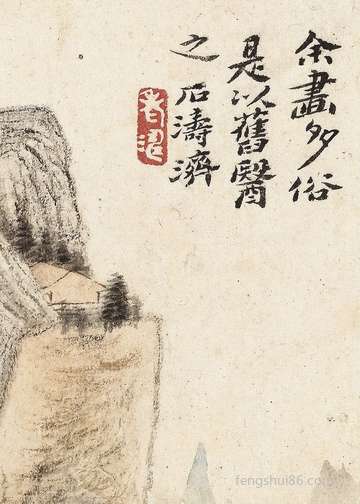 余畫多俗
是以舊醫
之石濤濟
fengshui86.com